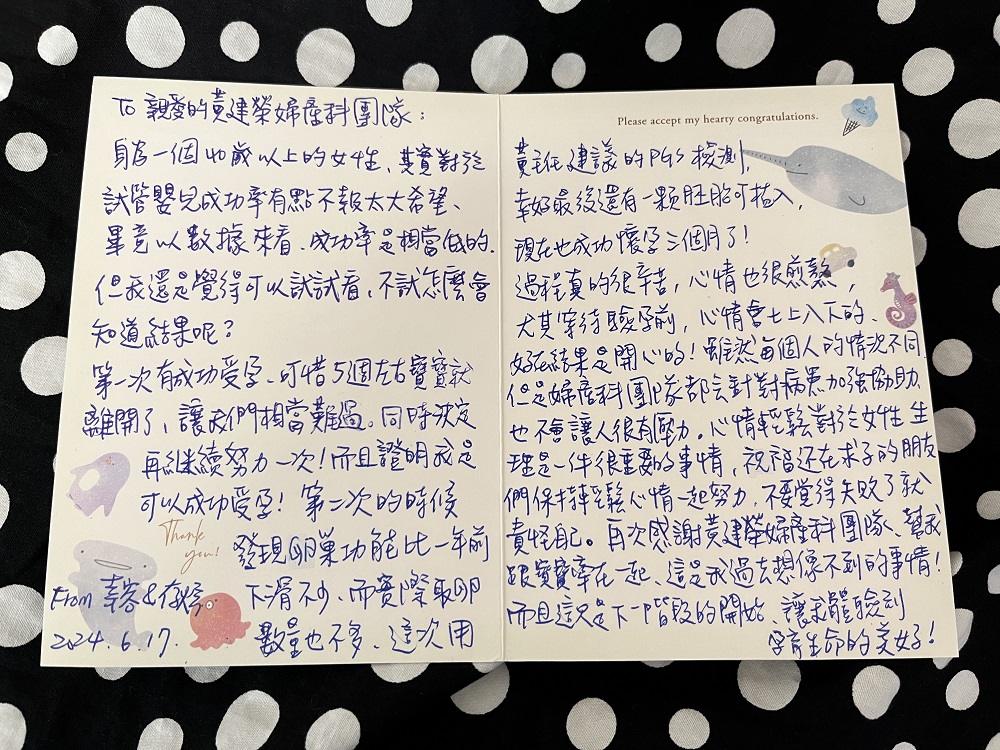 To 親愛的黃建榮婦產科團隊：
身為一個40歲以上的女性、其實對於
試管嬰兒成功率有點不報太大希望、
畢竟以數據來看、成功率是相當低的.
但我還是覺得可以試試看、不試怎麼會
知道結果呢？
第一次有成功受孕、可惜5週左右寶寶就
離開了，讓我們相當難過。同時決定
再繼續努力一次！而且證明我是
可以成功受孕！第二次的時候
發現卵巢功能比一年前
下滑不少、而實際取卵
數量也不多、這次用
Thank you!
From
2024.6.17.
Please accept my hearty congratulations.
黃主任建議的PGS檢測，
幸好最後還有一顆胚胎可植入，
現在也成功懷孕三個月了！
過程真的很辛苦，心情也很煎熬，
尤其等待驗孕前，心情會七上八下的、
好在結果是開心的！雖然每個人的情況不同
但是婦產科團隊都會針對病患加強協助、
也不會讓人很有壓力，心情輕鬆對於女性生
理是一件很重要的事情，祝福還在求子的朋友
們保持輕鬆心情一起努力，不要覺得失敗了就
責怪自己。再次感謝黃建榮婦產科團隊、幫我
跟寶寶牽在一起、這是我過去想像不到的事情！
而且這只是下一階段的開始、讓我體驗到
孕育生命的美好！